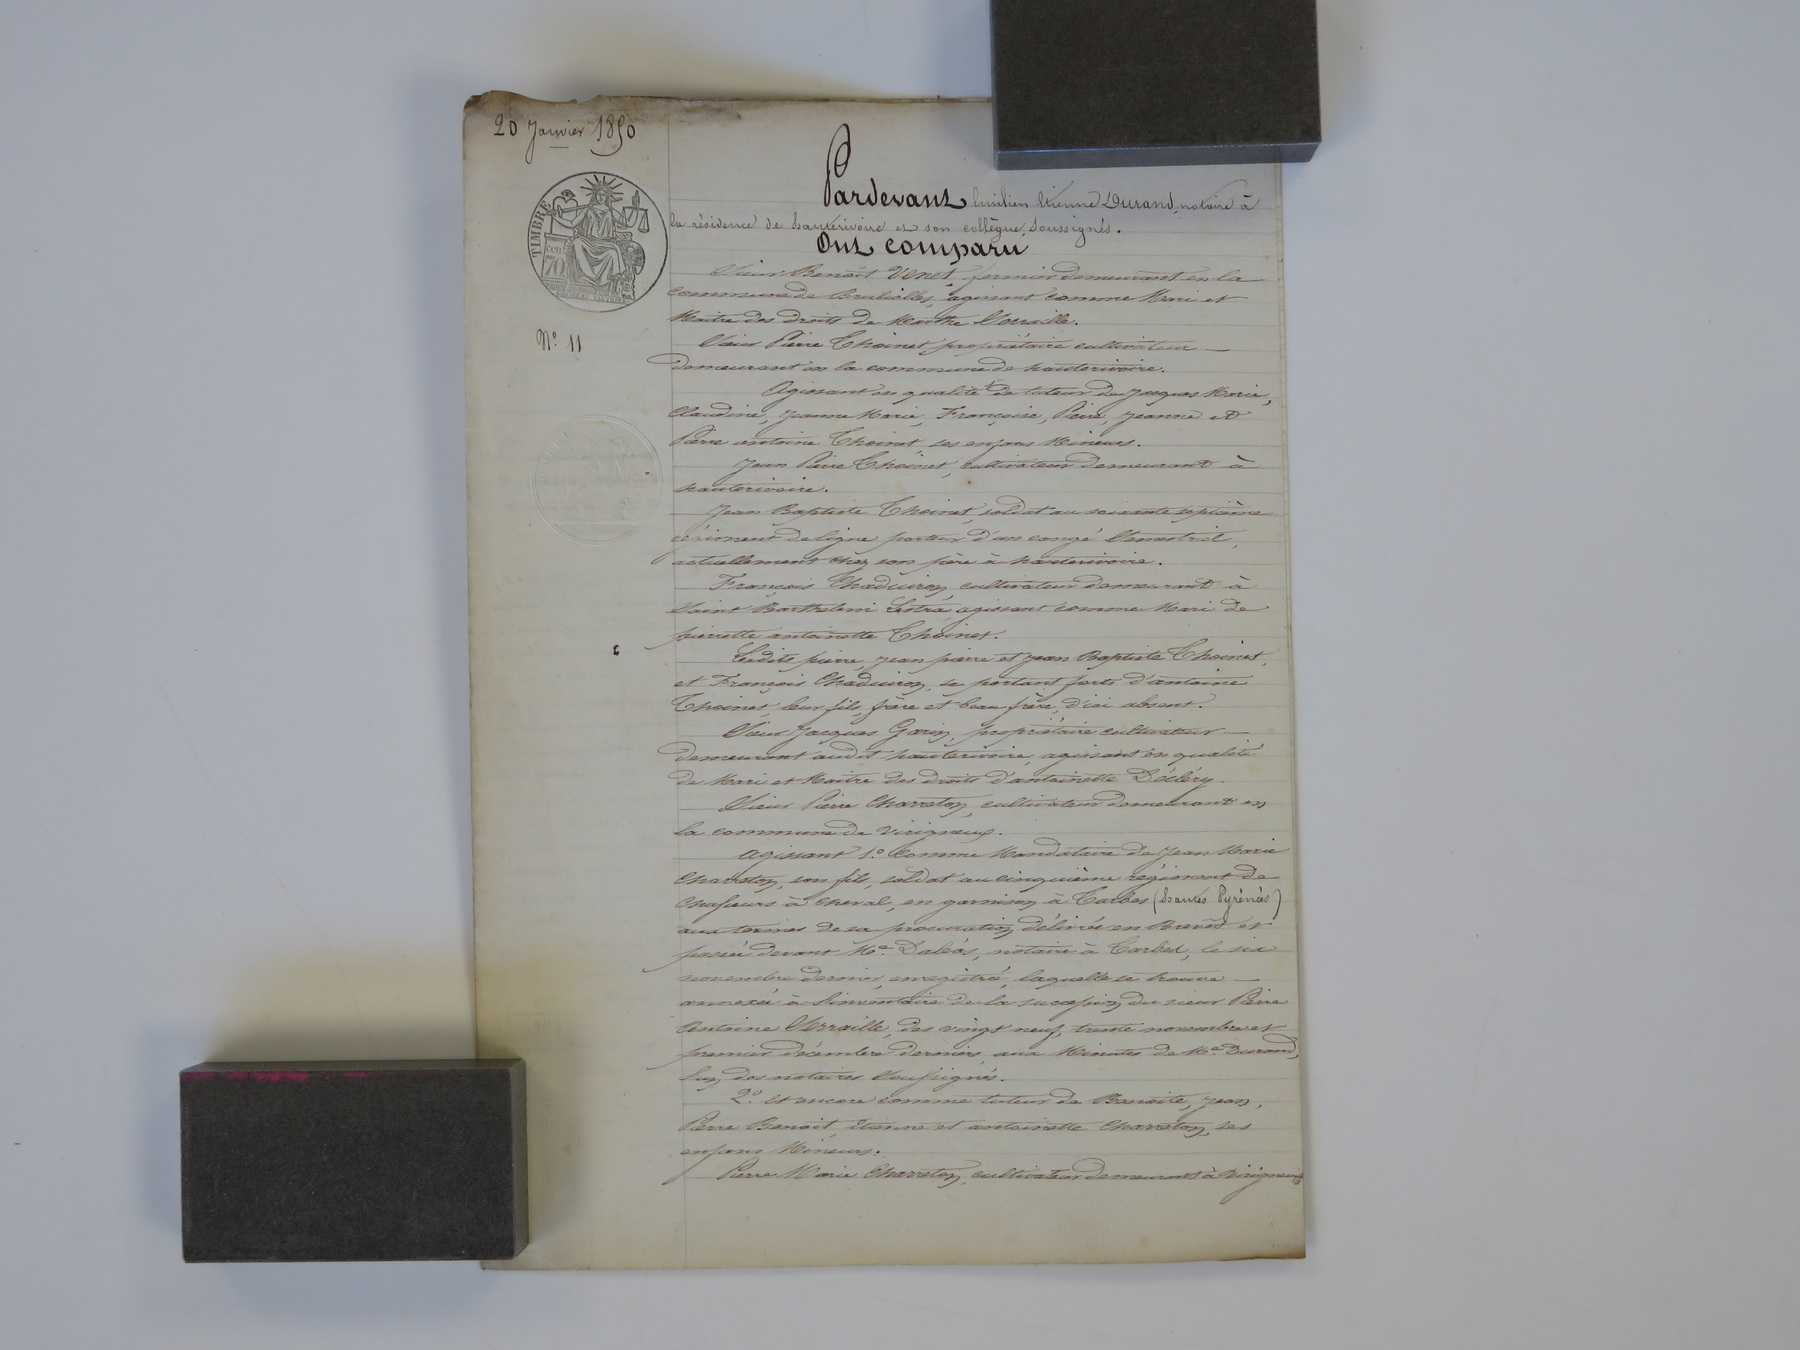 20 Janvier 1850
TIMBRE
cen
70
N.° 11
Pardevant Emilien Etienne Durand, notaire à
la résidence de hauterivoire et son collègue, Soussignés.
Ont comparu
Sieur Benoît Venet, fermier demeurant en la
commune de Brulioles, agissant comme Mari et
Maitre des droits de Marthe Verraille.
Sieur Pierre Thoinet, propriétaire cultivateur
demeurant en la commune de hauterivoire.
Agissant en qualité de tuteur de Jacques Marie,
Claudine, Jeanne Marie, Françoise, Pierre, Jeanne et
Pierre antoine Thoinet ses enfans Mineurs.
Jean Pierre Thoinet, cultivateur demeurant à
hauterivoire.
Jean Baptiste Thoinet, soldat au soixante septième
régiment de ligne porteur d'un congé Semestriel,
actuellement chez son père à hauterivoire.
François Chaduiron, cultivateur demeurant à
Saint Barthelemi Lestra agissant comme Mari de
pierrette antoinette Thoinet.
Lesdits pierre, jean pierre et jean Baptiste Thoinet,
et François Chaduiron, se portant forts d'antoine
Thoinet, leur fils, frère et beau frère, d'ici absent.
Sieur Jacques Garin, propriétaire cultivateur
demeurant audit hauterivoire, agissant en qualité
de Mari et Maitre des droits d'antoinette Décléry.
Sieur Pierre Charreton, cultivateur demeurant en
la commune de Virigneux.
Agissant 1.° Comme Mandataire de Jean Marie
Charreton, son fils, soldat au cinquième régiment de
Chasseurs à Cheval, en garnison à Tarbes (hautes Pyrénées)
aux termes de sa procuration délivrée en Brevet et
passée devant M.e Daléas, notaire à Tarbes, le six
novembre dernier, enregistrée, laquelle se trouve
annexée à l'inventaire de la succession du sieur Pierre
Antoine Verraille, des vingt neuf, trente novembre et
premier décembre derniers, aux Minutes de M.e Durand,
l'un des notaires Soussignés.
2.° Et encore comme tuteur de Benoîte, Jean,
Pierre Benoit, Etienne et antoinette Charreton, ses
enfans Mineurs.
Pierre Marie Charreton, cultivateur demeurant à Virigneux